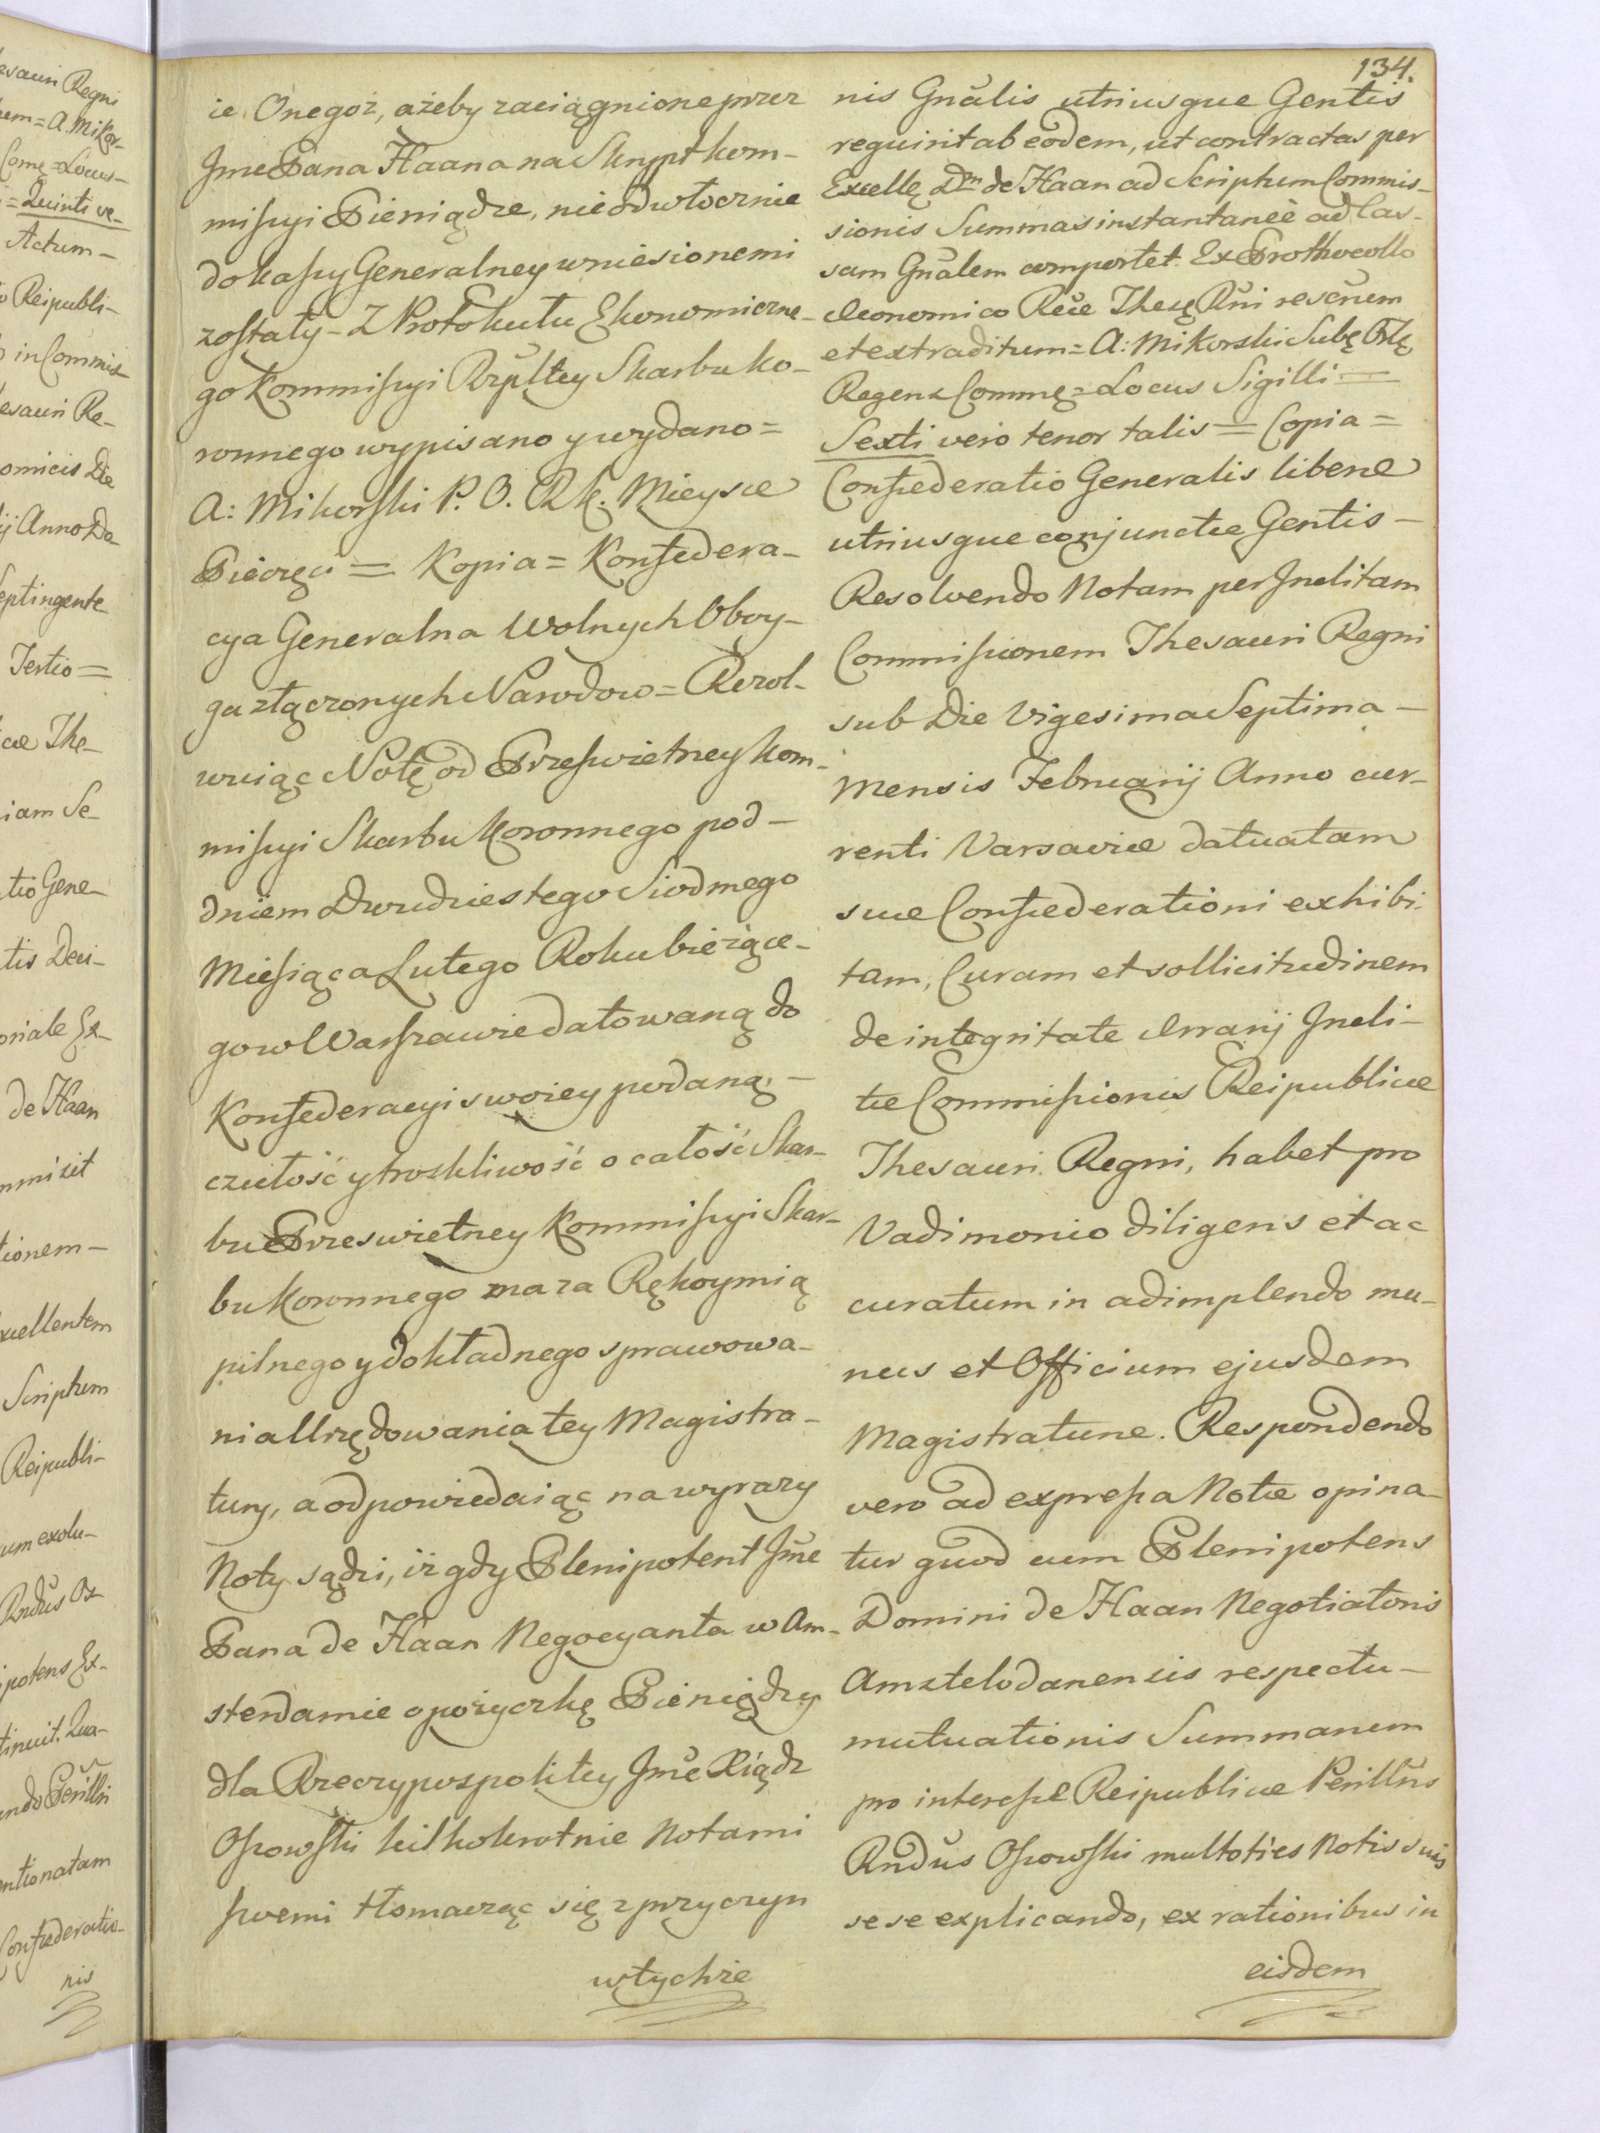 134.
ie Onegoż, ażeby zaciągnione przez
Jme Pana Haana na Skrypt kom-
missyi Pieniądze, nieodwłocznie
do kassy Generalney wniesionemi
zostały - Z Protokułu Ekonomiczne-
go kommissyi Rzpltey Skarbu ko-
ronnego wypisano y wydano =
A: Mikorski P. O. R. K. Mieysce
Pieczęci = Kopia = Konfedera-
cya Generalna Wolnych Oboy-
ga złączonych Narodow = Rezol-
wuiąc Notę od Przeswietney kom-
missyi Skarbu Koronnego pod -
dniem Dwudziestego Siodmego
Miesiąca Lutego Roku bieżące-
go w Warszawie datowaną do
Konfederacyi swoiey podaną, -
czułość y troskliwość o całość Skar-
bu Przeswietney Kommissyi Skar-
bu Koronnego ma za Rękoymią
pilnego y dokładnego sprawowa-
nia Urzędowania tey Magistra-
tury, a odpowiedaiąc na wyrazy
Noty sądzi, iż gdy Plenipotent Jme
Pana de Haan Negocyanta w Am-
sterdamie o pożyczkę Pieniędzy
dla Rzeczypospolitey Jme Xiądz
Ossowski kilkokrotnie Notami
swemi tłomacząc się z przyczyn
w tychże
nis Gnalis utriusque Gentis
requirit ab eodem, ut contractas per
Excellę Dm de Haan ad Scriptum Commis-
sionis Summas instantaneè ad Cas-
sam Gnalem comportet. Ex Prothocollo
Oeconomico Reice Thesę Rni rescnem
et extraditum = A: Mikorski Subę Oskę
Regens Commę = Locus Sigilli =
Sexti vero tenor talis = Copia =
Confœderatio Generalis liberæ
utriusque conjunctæ Gentis -
Resolvendo Notam per Inclitam
Commissionem Thesauri Regni
sub Die Vigesima Septima -
Mensis Februarij Anno cur-
renti Varsaviæ datuatam
suæ Confœderationi exhibi-
tam, Curam et sollicitudinem
de integritate Ærarij Incli-
tæ Commissionis Reipublicæ
Thesauri Regni, habet pro
Vadimonio diligens et ac
curatum in adimplendo mu-
nus et Officium ejusdem
Magistraturæ. Respondendo
vero ad expressa Notæ opina-
tur quod cum Plenipotens
Domini de Haan Negotiatoris
Amstelodanensis respectu -
mutuationis Summarum
pro interesse Reipublicæ Perillris
Rndus Ossowski multoties Notis suis
sese explicando, ex rationibus in
eisdem